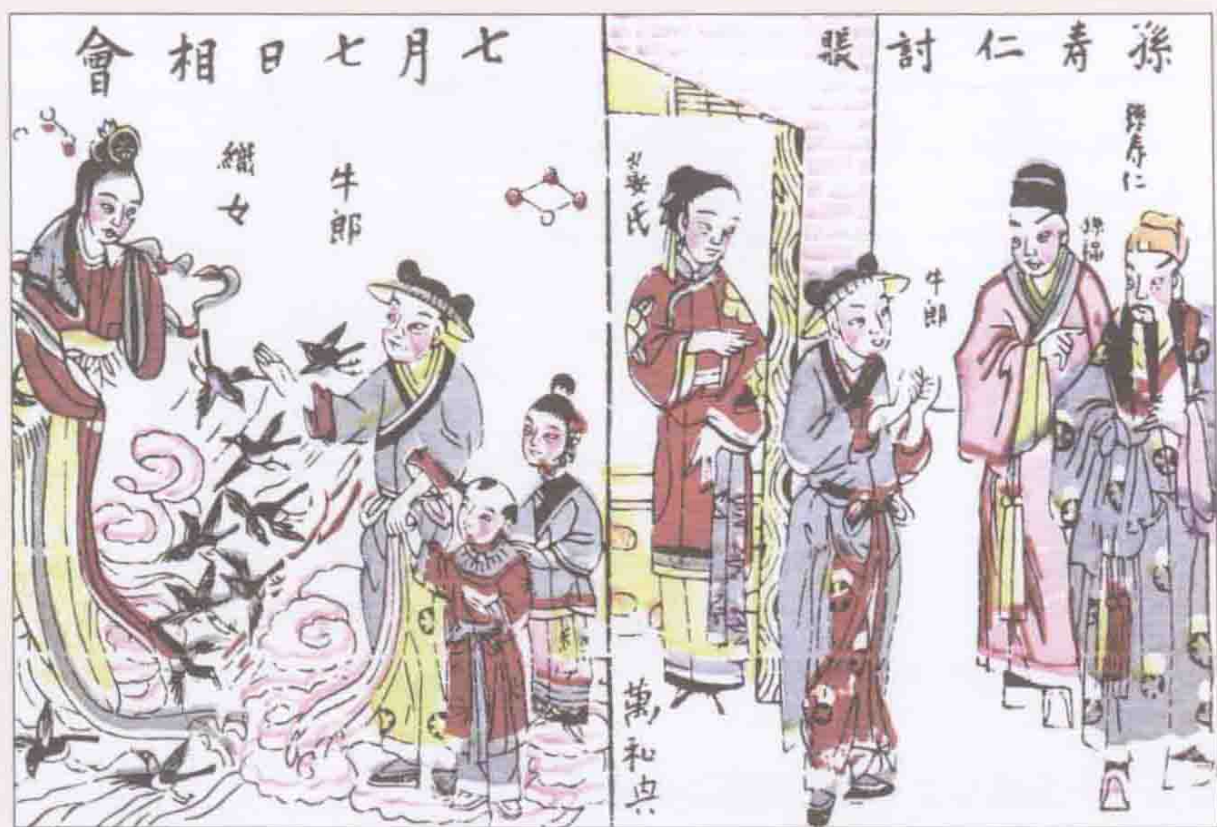 孫寿仁討賬
孫寿仁
孫福
牛郎
氏
萬和典
七月七日相會
牛郎
織女